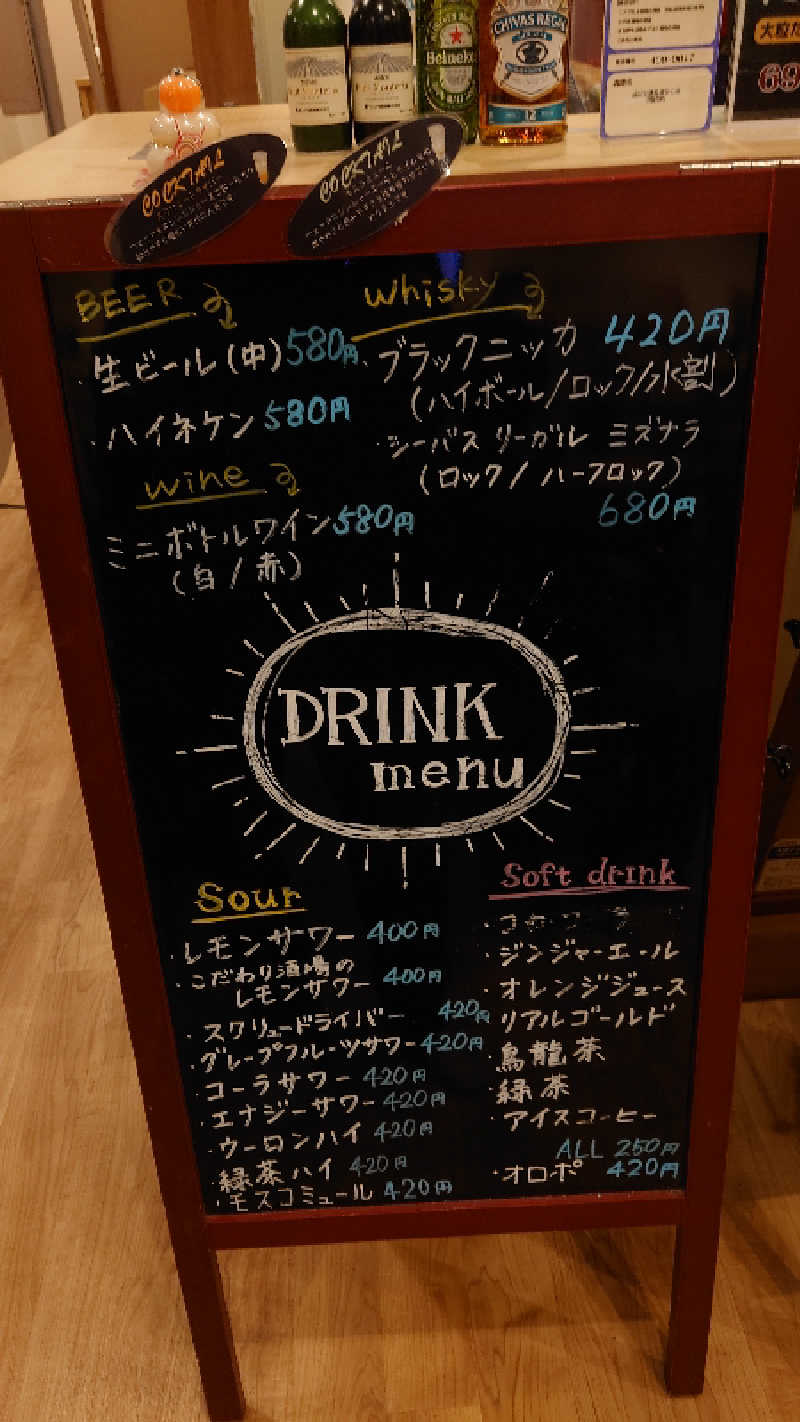 CHIVAS REGAL
12
Heineken
COCKTAIL
COCKTAIL
BEER
・生ビール(中)580円
・ハイネケン 580円
wine
ミニボトルワイン580円
(白/赤)
whisky
・ブラックニッカ 420円
(ハイボール/ロック/水割)
・シーバスリーガル ミズナラ
(ロック/ハーフロック)
680円
DRINK
menu
Sour
・レモンサワー 400円
・こだわり酒場の
レモンサワー 400円
・スクリュードライバー 420円
・グレープフルーツサワー420円
・コーラサワー 420円
・エナジーサワー 420円
・ウーロンハイ 420円
・緑茶ハイ 420円
・モスコミュール 420円
Soft drink
・ジンジャーエール
・オレンジジュース
・リアルゴールド
・烏龍茶
・緑茶
・アイスコーヒー
ALL 250円
・オロポ 420円